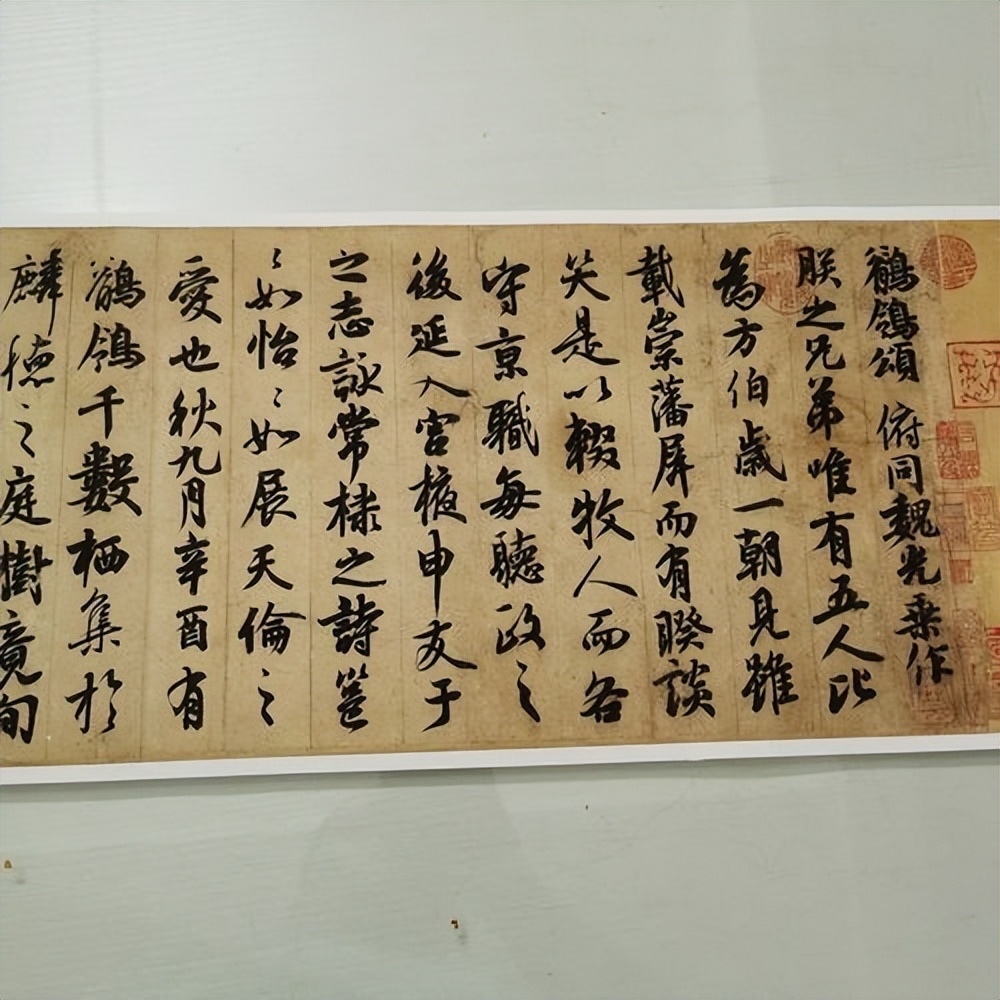 鶺鴒頌 俯同魏光乘作
朕之兄弟唯有五人比
為方伯歲一朝見雖
載崇藩屏而有睽談
笑是以輟牧人而各
守京職每聽政之
後延入宮掖申友于
之志詠常棣之詩邕
〻如怡〻如展天倫之
愛也秋九月辛酉有
鶺鴒千數栖集於
麟德之庭樹竟旬